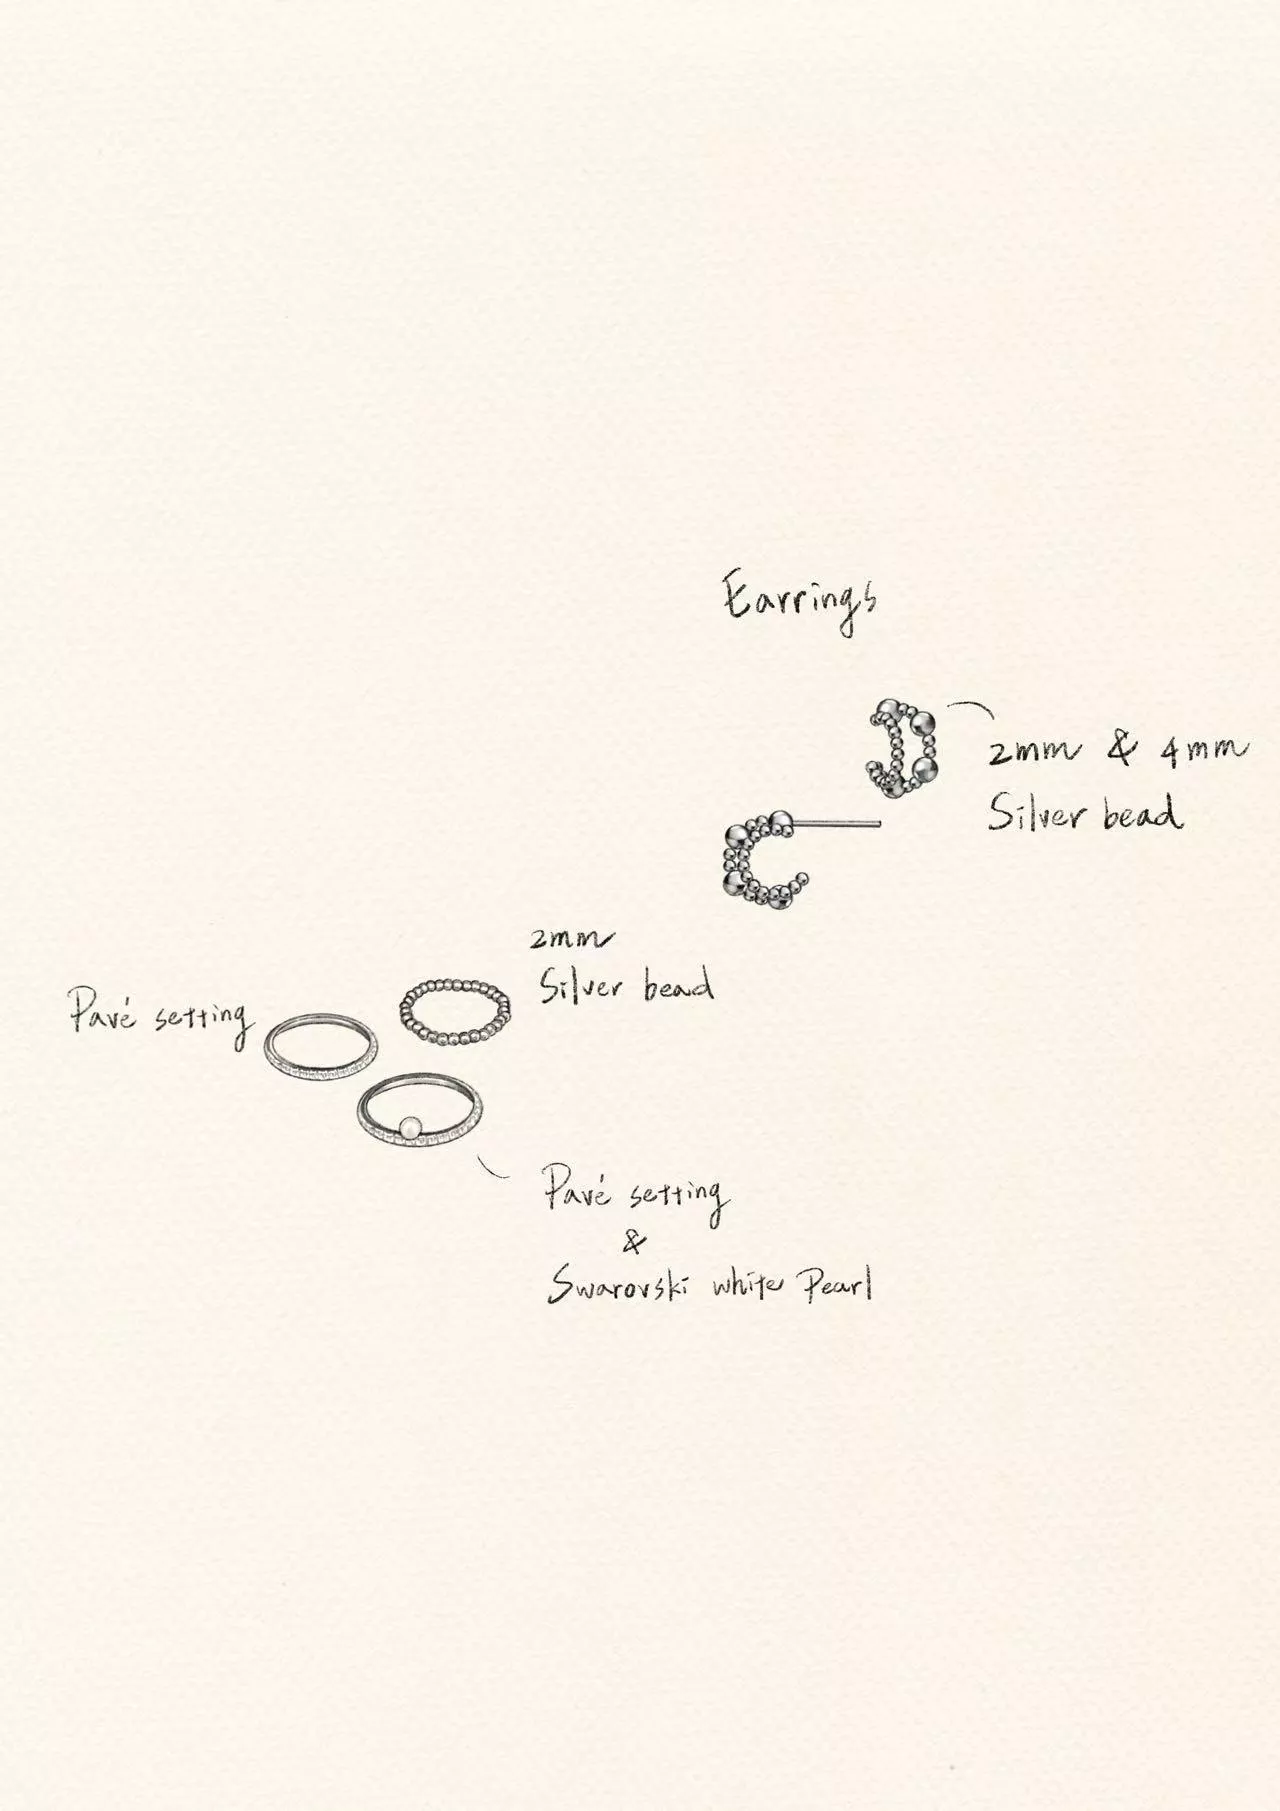 Earrings
2mm & 4mm
Silver bead
2mm
Silver bead
Pavé setting
Pavé setting
&
Swarovski white Pearl